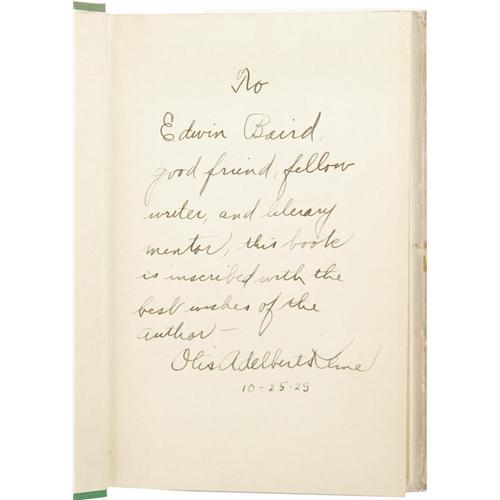 To
Edwin Baird,
good friend, fellow
writer, and literary
mentor, this book
is inscribed with the
best wishes of the
author—
Otis Adelbert Kline
10-25-29